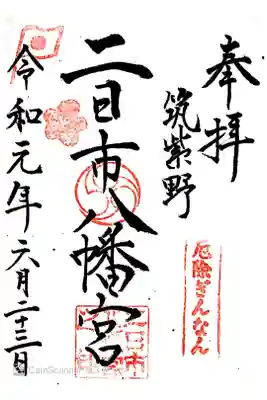 奉拝
筑紫野
厄除ぎんなん
二日市八幡宮
令和元年六月二十三日
CamScanner